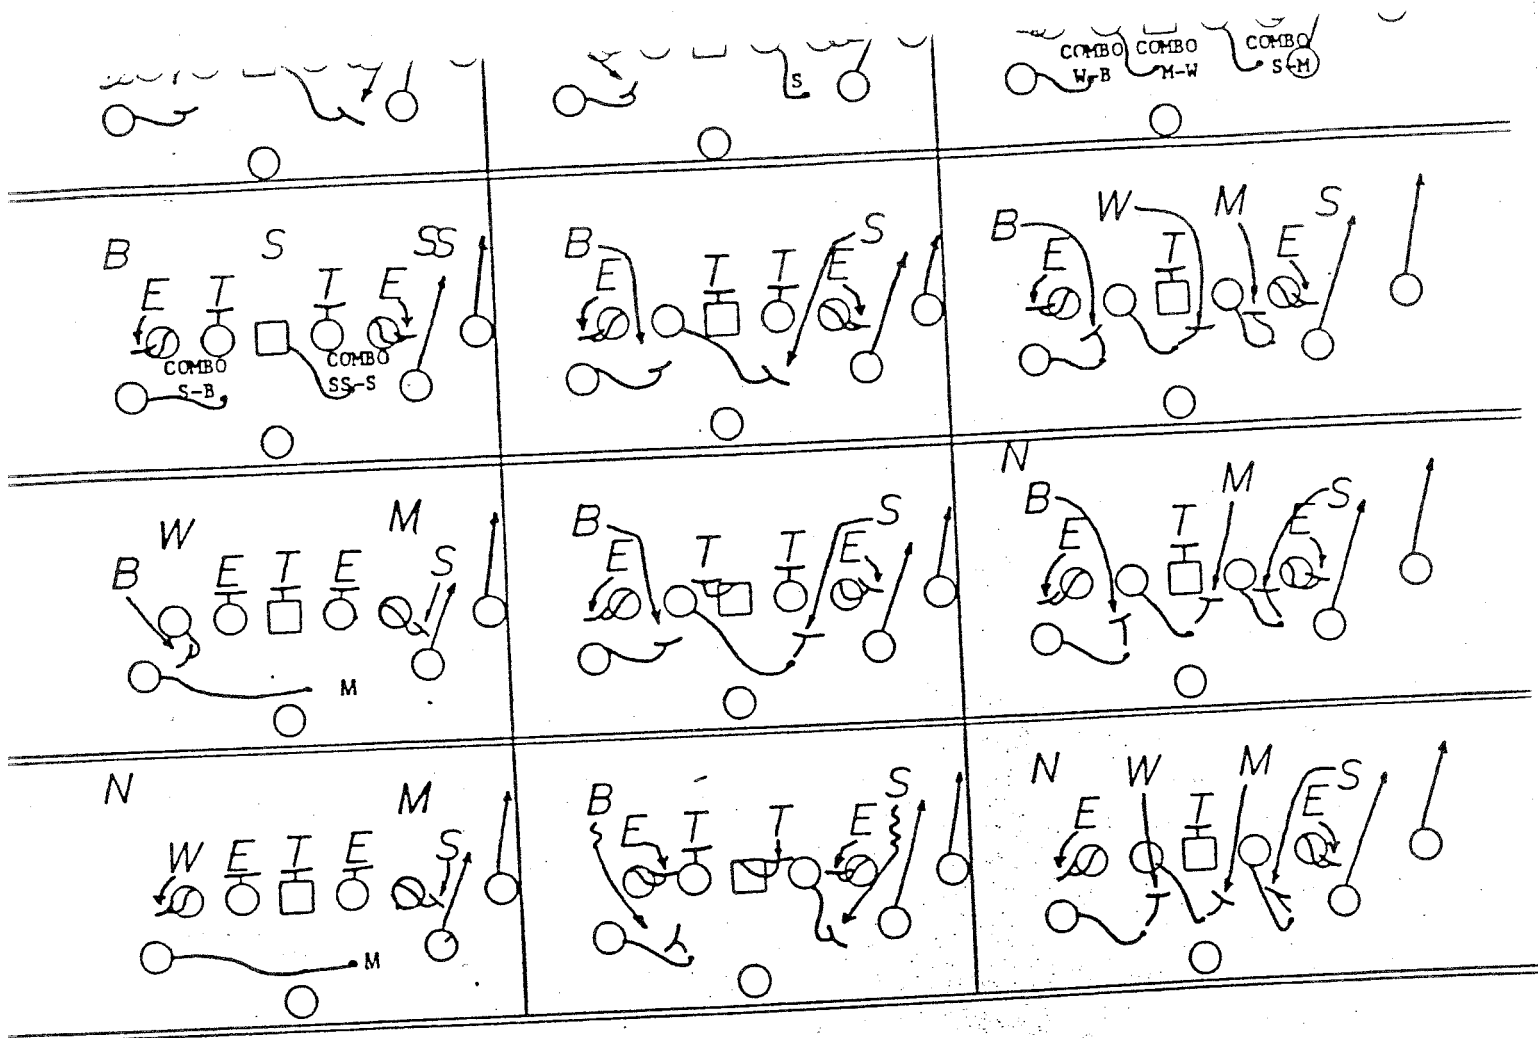 COMBO COMBO COMBO
W-B M-W S-M
S
B S SS
E T T E
COMBO COMBO
S-B SS-S
B S
E T T E
B W M S
E T E
W M
B E T E S
M
B S
E T T E
N
B M S
E T E
N M
W E T E S
M
B S
E T T E
N W M S
E T E